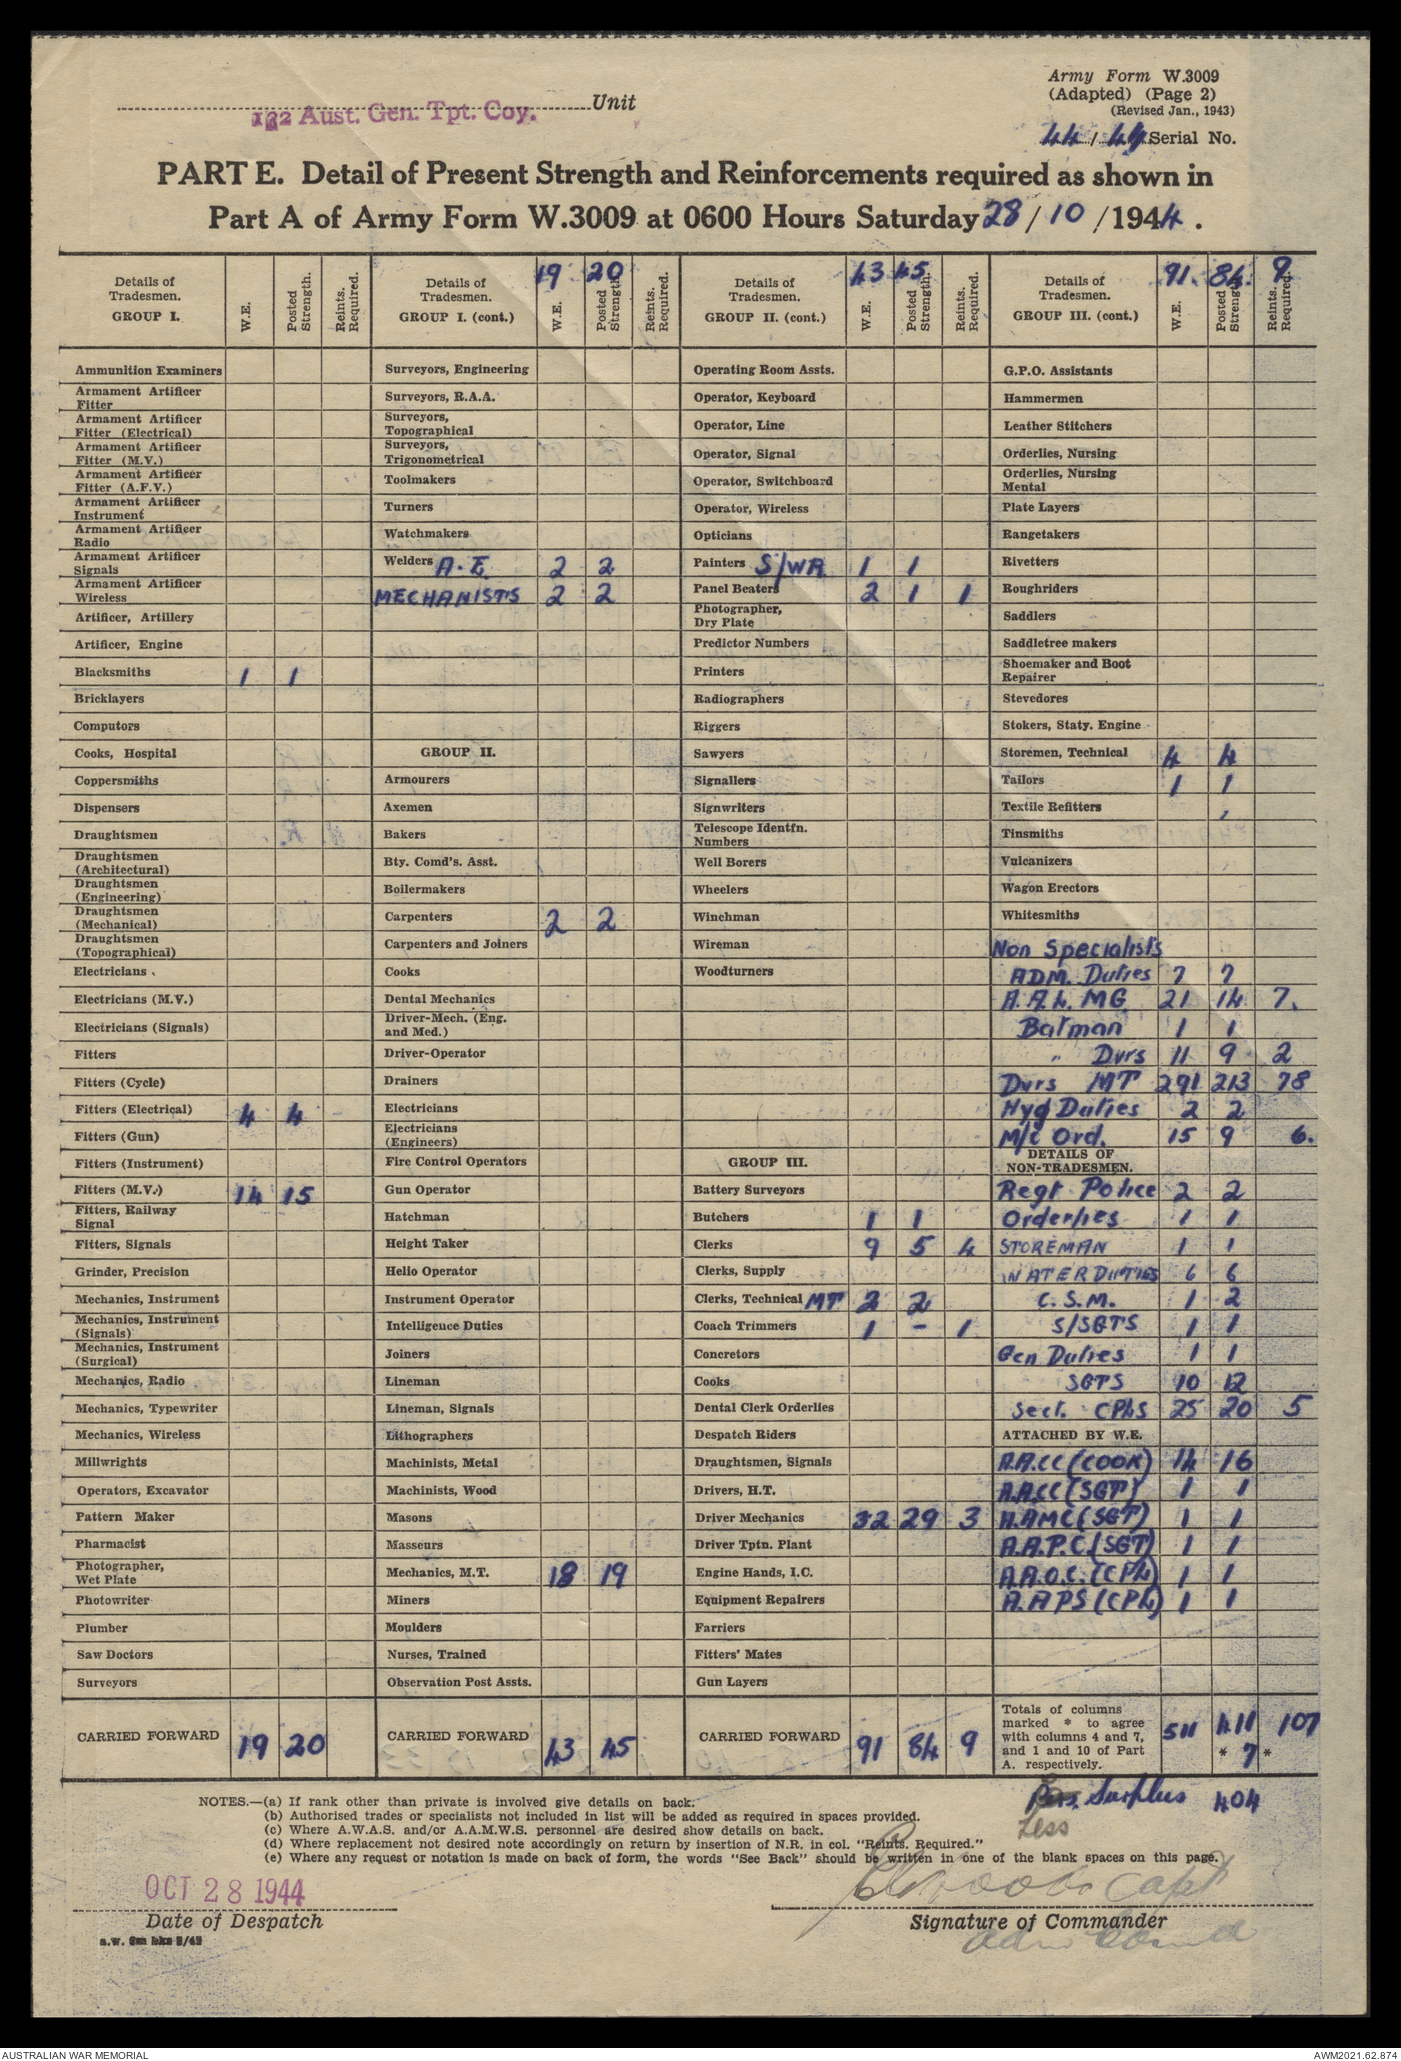 Army Form W.3009
(Adapted) (Page 2)
(Revised Jan., 1943)
132 Aust. Gen. Tpt. Coy. Unit
44 / 44 Serial No.
PART E. Detail of Present Strength and Reinforcements required as shown in
Part A of Army Form W.3009 at 0600 Hours Saturday 28 / 10 / 1944 .
Details of Tradesmen. GROUP I.
W.E.
Posted Strength.
Reints. Required.
Ammunition Examiners
Armament Artificer Fitter
Armament Artificer Fitter (Electrical)
Armament Artificer Fitter (M.V.)
Armament Artificer Fitter (A.F.V.)
Armament Artificer Instrument
Armament Artificer Radio
Armament Artificer Signals
Armament Artificer Wireless
Artificer, Artillery
Artificer, Engine
Blacksmiths 1 1
Bricklayers
Computors
Cooks, Hospital
Coppersmiths
Dispensers
Draughtsmen
Draughtsmen (Architectural)
Draughtsmen (Engineering)
Draughtsmen (Mechanical)
Draughtsmen (Topographical)
Electricians
Electricians (M.V.)
Electricians (Signals)
Fitters
Fitters (Cycle)
Fitters (Electrical) 4 4
Fitters (Gun)
Fitters (Instrument)
Fitters (M.V.) 14 15
Fitters, Railway Signal
Fitters, Signals
Grinder, Precision
Mechanics, Instrument
Mechanics, Instrument (Signals)
Mechanics, Instrument (Surgical)
Mechanics, Radio
Mechanics, Typewriter
Mechanics, Wireless
Millwrights
Operators, Excavator
Pattern Maker
Pharmacist
Photographer, Wet Plate
Photowriter
Plumber
Saw Doctors
Surveyors
CARRIED FORWARD 19 20
Details of Tradesmen. GROUP I. (cont.)
19 20
W.E.
Posted Strength.
Reints. Required.
Surveyors, Engineering
Surveyors, R.A.A.
Surveyors, Topographical
Surveyors, Trigonometrical
Toolmakers
Turners
Watchmakers
Welders A.E. 2 2
MECHANISTS 2 2
GROUP II.
Armourers
Axemen
Bakers
Bty. Comd's. Asst.
Boilermakers
Carpenters 2 2
Carpenters and Joiners
Cooks
Dental Mechanics
Driver-Mech. (Eng. and Med.)
Driver-Operator
Drainers
Electricians
Electricians (Engineers)
Fire Control Operators
Gun Operator
Hatchman
Height Taker
Helio Operator
Instrument Operator
Intelligence Duties
Joiners
Lineman
Lineman, Signals
Lithographers
Machinists, Metal
Machinists, Wood
Masons
Masseurs
Mechanics, M.T. 18 19
Miners
Moulders
Nurses, Trained
Observation Post Assts.
CARRIED FORWARD 43 45
Details of Tradesmen. GROUP II. (cont.)
43 45
W.E.
Posted Strength.
Reints. Required.
Operating Room Assts.
Operator, Keyboard
Operator, Line
Operator, Signal
Operator, Switchboard
Operator, Wireless
Opticians
Painters S/WR 1 1
Panel Beaters 2 1 1
Photographer, Dry Plate
Predictor Numbers
Printers
Radiographers
Riggers
Sawyers
Signallers
Signwriters
Telescope Identfn. Numbers
Well Borers
Wheelers
Winchman
Wireman
Woodturners
GROUP III.
Battery Surveyors
Butchers 1 1
Clerks 9 5 4
Clerks, Supply
Clerks, Technical MT 2 2
Coach Trimmers 1 - 1
Concretors
Cooks
Dental Clerk Orderlies
Despatch Riders
Draughtsmen, Signals
Drivers, H.T.
Driver Mechanics 32 29 3
Driver Tptn. Plant
Engine Hands, I.C.
Equipment Repairers
Farriers
Fitters' Mates
Gun Layers
CARRIED FORWARD 91 84 9
Details of Tradesmen. GROUP III. (cont.)
91. 84. 9
W.E.
Posted Strength
Reints. Required.
G.P.O. Assistants
Hammermen
Leather Stitchers
Orderlies, Nursing
Orderlies, Nursing Mental
Plate Layers
Rangetakers
Rivetters
Roughriders
Saddlers
Saddletree makers
Shoemaker and Boot Repairer
Stevedores
Stokers, Staty. Engine
Storemen, Technical 4 4
Tailors 1 1
Textile Refitters
Tinsmiths
Vulcanizers
Wagon Erectors
Whitesmiths
Non Specialists
ADM. Duties 7 7
A.A.L. MG 21 14 7.
Batman 1 1
" Dvrs 11 9 2
Dvrs MT 291 213 78
Hyg Duties 2 2
M/C Ord. 15 9 6.
DETAILS OF NON-TRADESMEN.
Regt Police 2 2
Orderlies 1 1
STOREMAN 1 1
WATER DUTIES 6 6
C.S.M. 1 2
S/SGTS 1 1
Gen Duties 1 1
SGTS 10 12
Sect. CPLS 25 20 5
ATTACHED BY W.E.
A.A.CC (COOK) 14 16
A.A.CC (SGT) 1 1
A.AMC (SGT) 1 1
A.A.P.C. (SGT) 1 1
A.A.O.C. (CPL) 1 1
A.APS (CPL) 1 1
Totals of columns marked * to agree with columns 4 and 7, and 1 and 10 of Part A. respectively. 511 411 107
* 7 *
Surplus 404
Less
NOTES.—(a) If rank other than private is involved give details on back.
(b) Authorised trades or specialists not included in list will be added as required in spaces provided.
(c) Where A.W.A.S. and/or A.A.M.W.S. personnel are desired show details on back.
(d) Where replacement not desired note accordingly on return by insertion of N.R. in col. "Reints. Required."
(e) Where any request or notation is made on back of form, the words "See Back" should be written in one of the blank spaces on this page.
OCT 28 1944
Date of Despatch
Capt
Signature of Commander
AUSTRALIAN WAR MEMORIAL
AWM2021.62.874